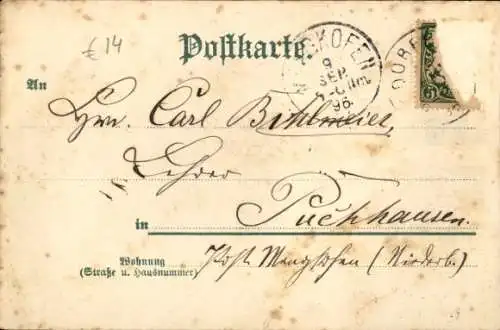 € 14
Postkarte.
KOFEN
9
SEP.
96.
OBER
An
Hrn. Carl Bihlmeier,
Lehrer
in Puchhausen.
Wohnung
(Straße u. Hausnummer)
Post Mengkofen (Niederb.)